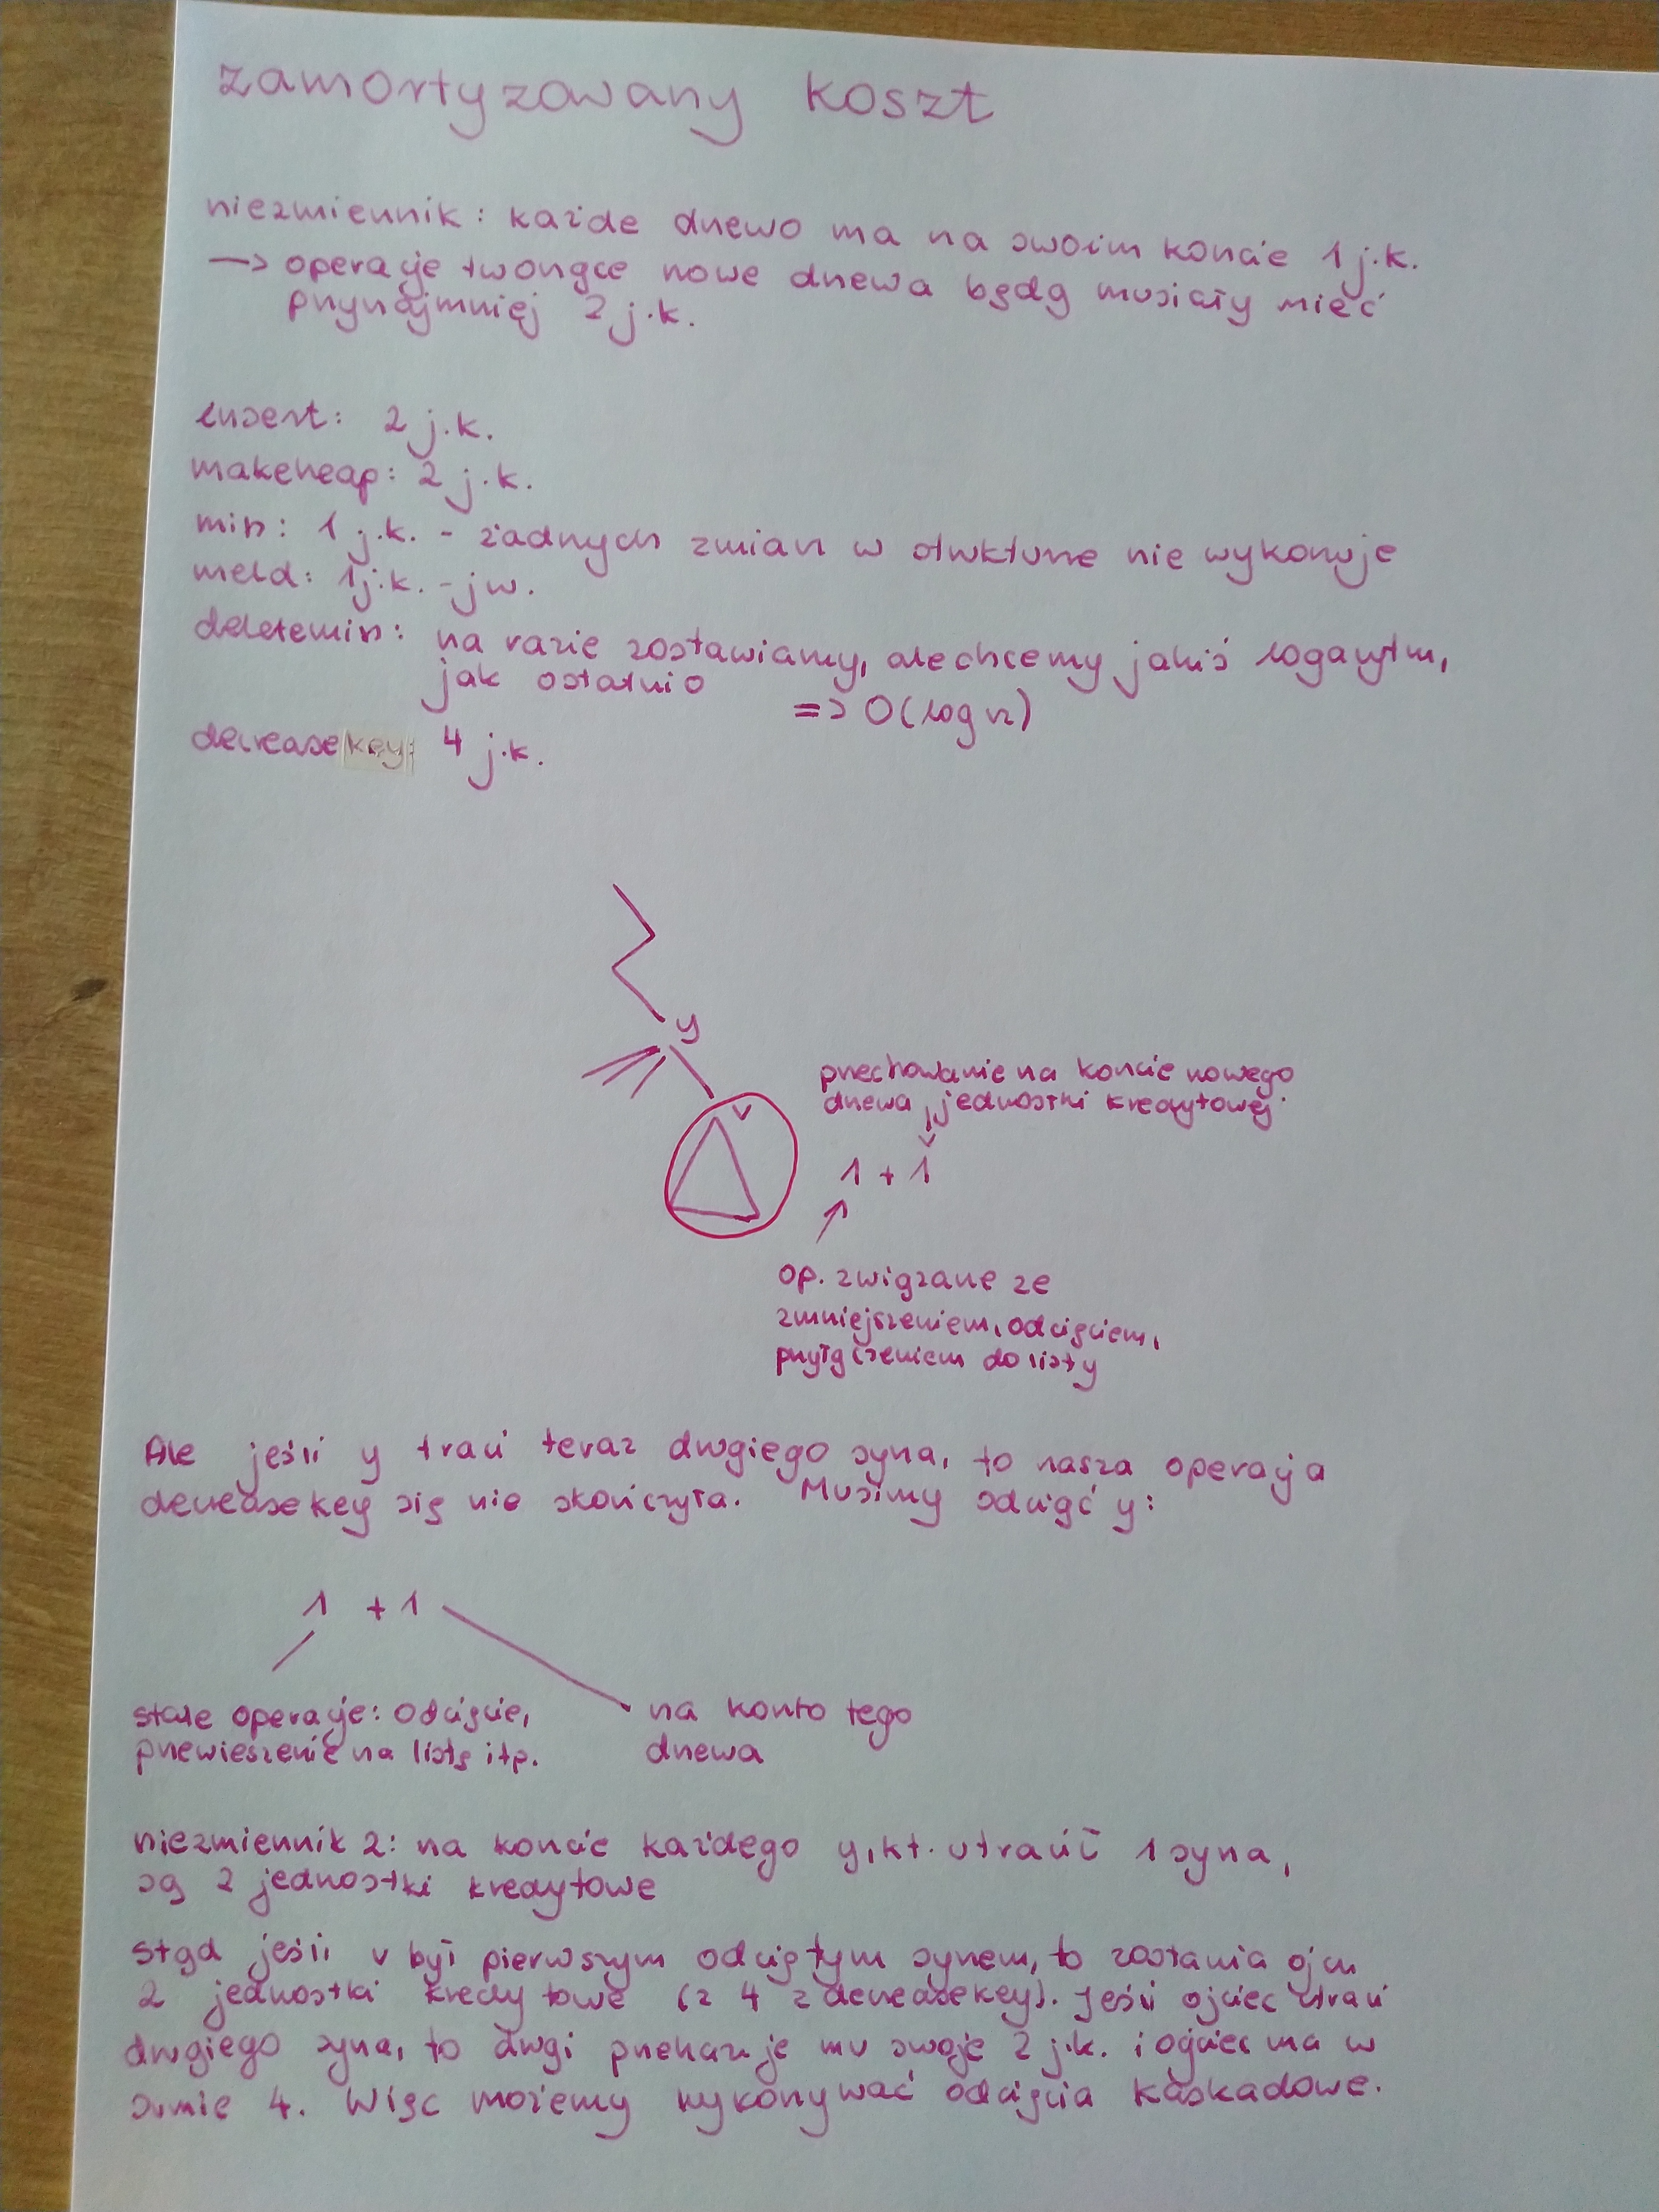 zamortyzowany koszt
niezmiennik: każde drzewo ma na swoim koncie 1 j.k.
-> operacje tworzące nowe drzewa będą musiały mieć
przynajmniej 2 j.k.
insert: 2 j.k.
makeheap: 2 j.k.
min: 1 j.k. - żadnych zmian w strukturze nie wykonuje
meld: 1 j.k. - jw.
deletemin: na razie zostawiamy, ale chcemy jakiś logarytm,
jak ostatnio
=> O(log n)
decreasekey: 4 j.k.
y
v
przechowanie na koncie nowego
drzewa jednostki kredytowej
1 + 1
op. związane ze
zmniejszeniem, odcięciem,
przyłączeniem do listy
Ale jeśli y traci teraz drugiego syna, to nasza operacja
decreasekey się nie skończyła. Musimy odciąć y:
1 + 1
stałe operacje: odcięcie,
przewieszenie na listę itp.
na konto tego
drzewa
niezmiennik 2: na koncie każdego y, kt. utracił 1 syna,
są 2 jednostki kredytowe
Stąd jeśli v był pierwszym odciętym synem, to zostawia ojcu
2 jednostki kredytowe (z 4 z decreasekey). Jeśli ojciec straci
drugiego syna, to drugi przekazuje mu swoje 2 j.k. i ojciec ma w
sumie 4. Więc możemy wykonywać odcięcia kaskadowe.